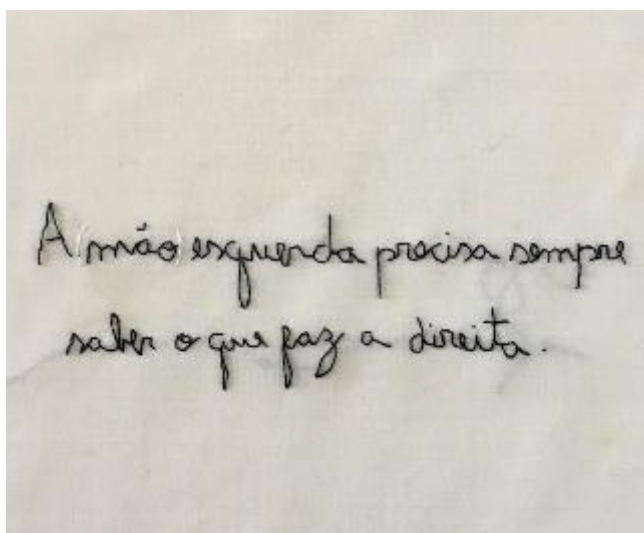 A mão esquerda precisa sempre
saber o que faz a direita.